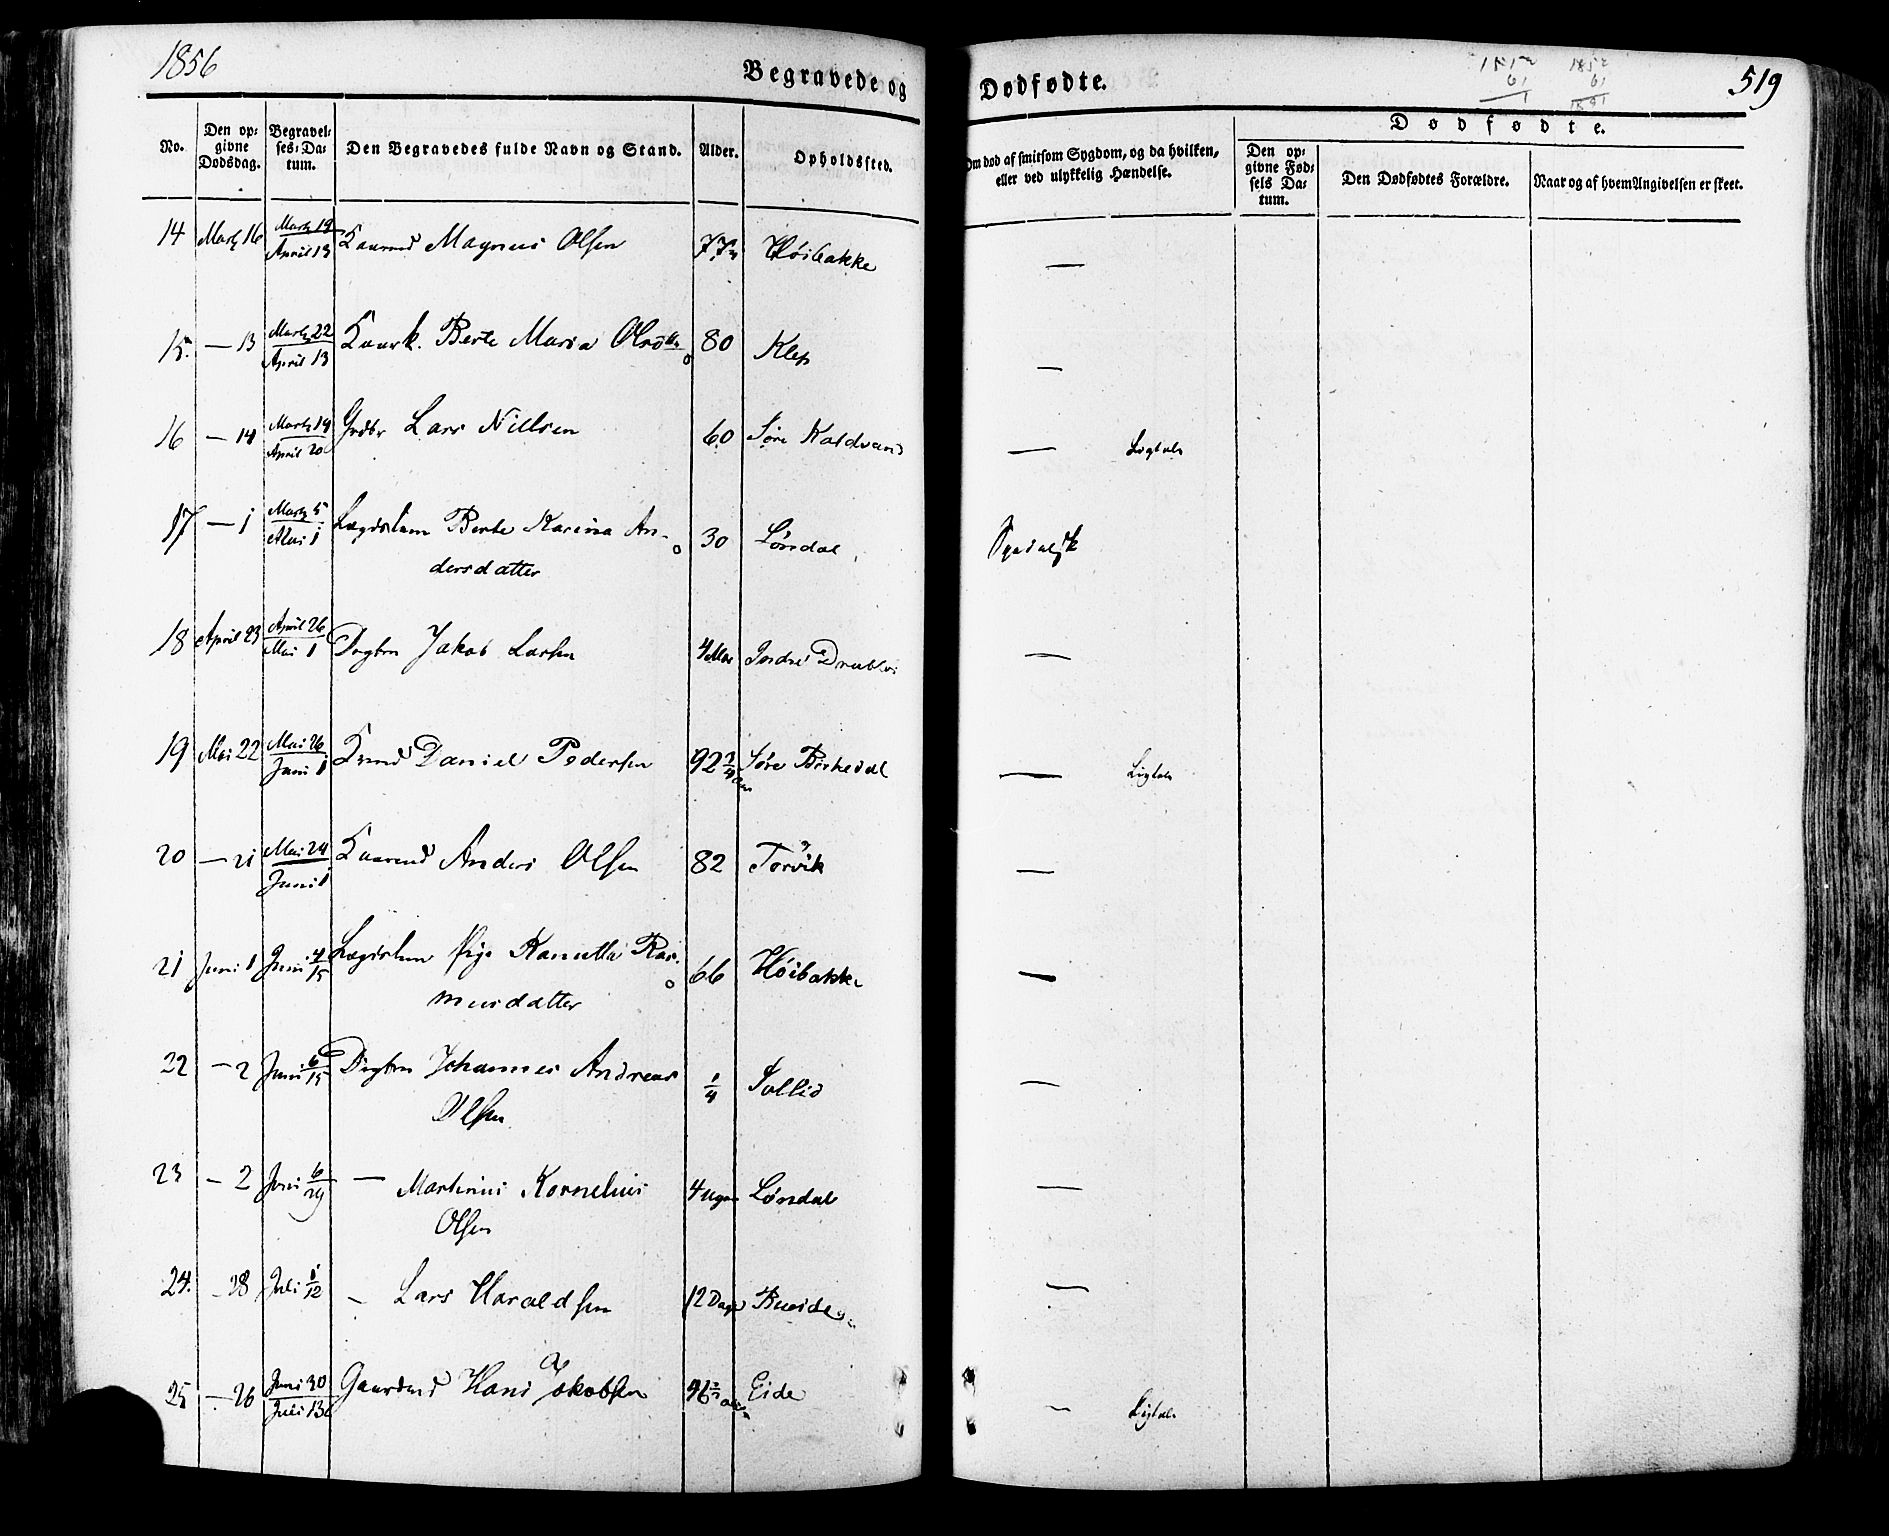 1856
Begravede og Dødfødte.
519
No.
Den opgivne Dødsdag.
Begravelses-Datum.
Den Begravedes fulde Navn og Stand.
Alder.
Opholdssted.
Om død af smitsom Sygdom, og da hvilken, eller ved ulykkelig Hændelse.
Dødfødte.
Den opgivne Fødsels Datum.
Den Dødfødtes Forældre.
Naar og af hvem Angivelsen er skeet.
14 Marts 16 Marts 19 April 13 Magnus Olsen 77 Høibakke —
15. — 13 Marts 22 April 13 Berte Maria 80 Klep —
16 — 14 Marts 19 April 20 Grdbr Lars Nielsen 60 Søre Kaldvand — Ligtale
17 — 1 Marts 5 Mai 1 Lægdslem Berte Karina An-
dersdatter 30 Løndal
18 April 23 April 26 Mai 1 Jakob Larsen 4 Indre —
19 Mai 22 Mai 26 Juni 1 Daniel Pedersen 92 3/4 Søre Birkedal — Ligtale
20 — 21 Mai 24 Juni 1 Anders Olsen 82 Torvik —
21 Juni 1 Juni 4/15 Lægdslem Ras-
musdatter 66 Høibakke —
22 — 2 Juni 6/15 Johannes Andreas
Olsen 1/4 Sollid —
23 — 2 Juni 6/29 — Martinus Kornelius
Olsen 4 Uger Løndal —
24. — 28 Juli 1/12 — Lars Haraldsen 12 Dage —
25 — 26 Juni 30 Juli 13 Hans Jakobsen Eide — Ligtale